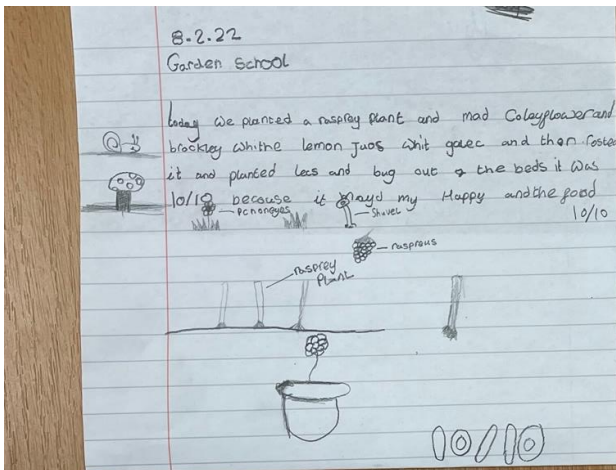 8.2.22
Garden School
today we planted a rasprey plant and mad Coleyflower and
brockley whithe lemon juos whit galec and then rosted
it and planted lecs and bug out the beds it was
10/10 becouse it mayd my Happy and the good
10/10
Shuvel
rasprous
rasprey
Plant
10/10